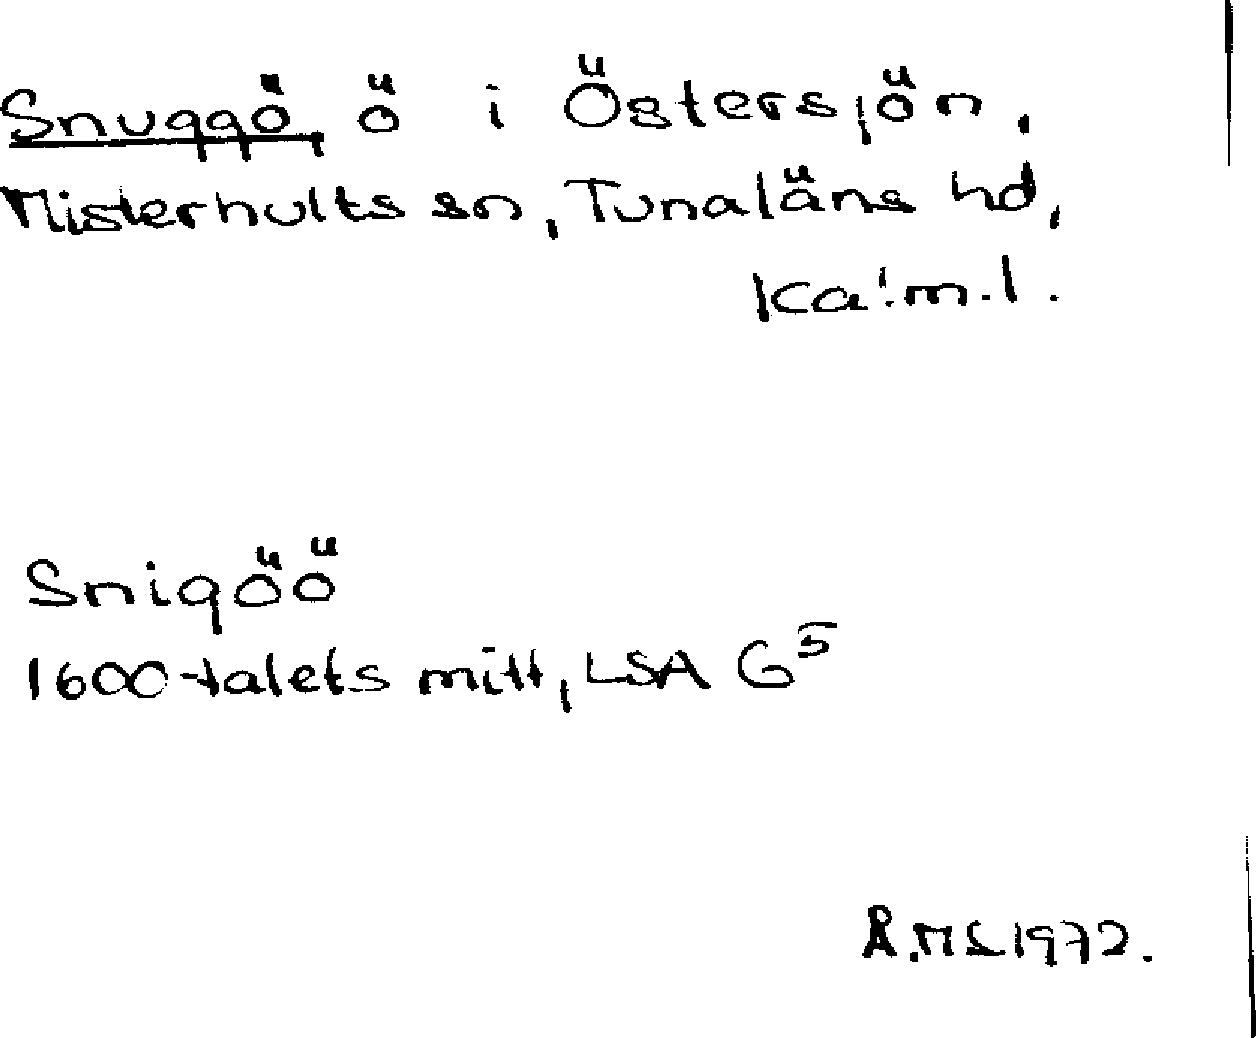 Snuggö, ö i Östersjön,
Misterhults sn, Tunaläns hd,
Kalm.l.
Snigöö
1600-talets mitt, LSA G⁵
Å.MS 1972.